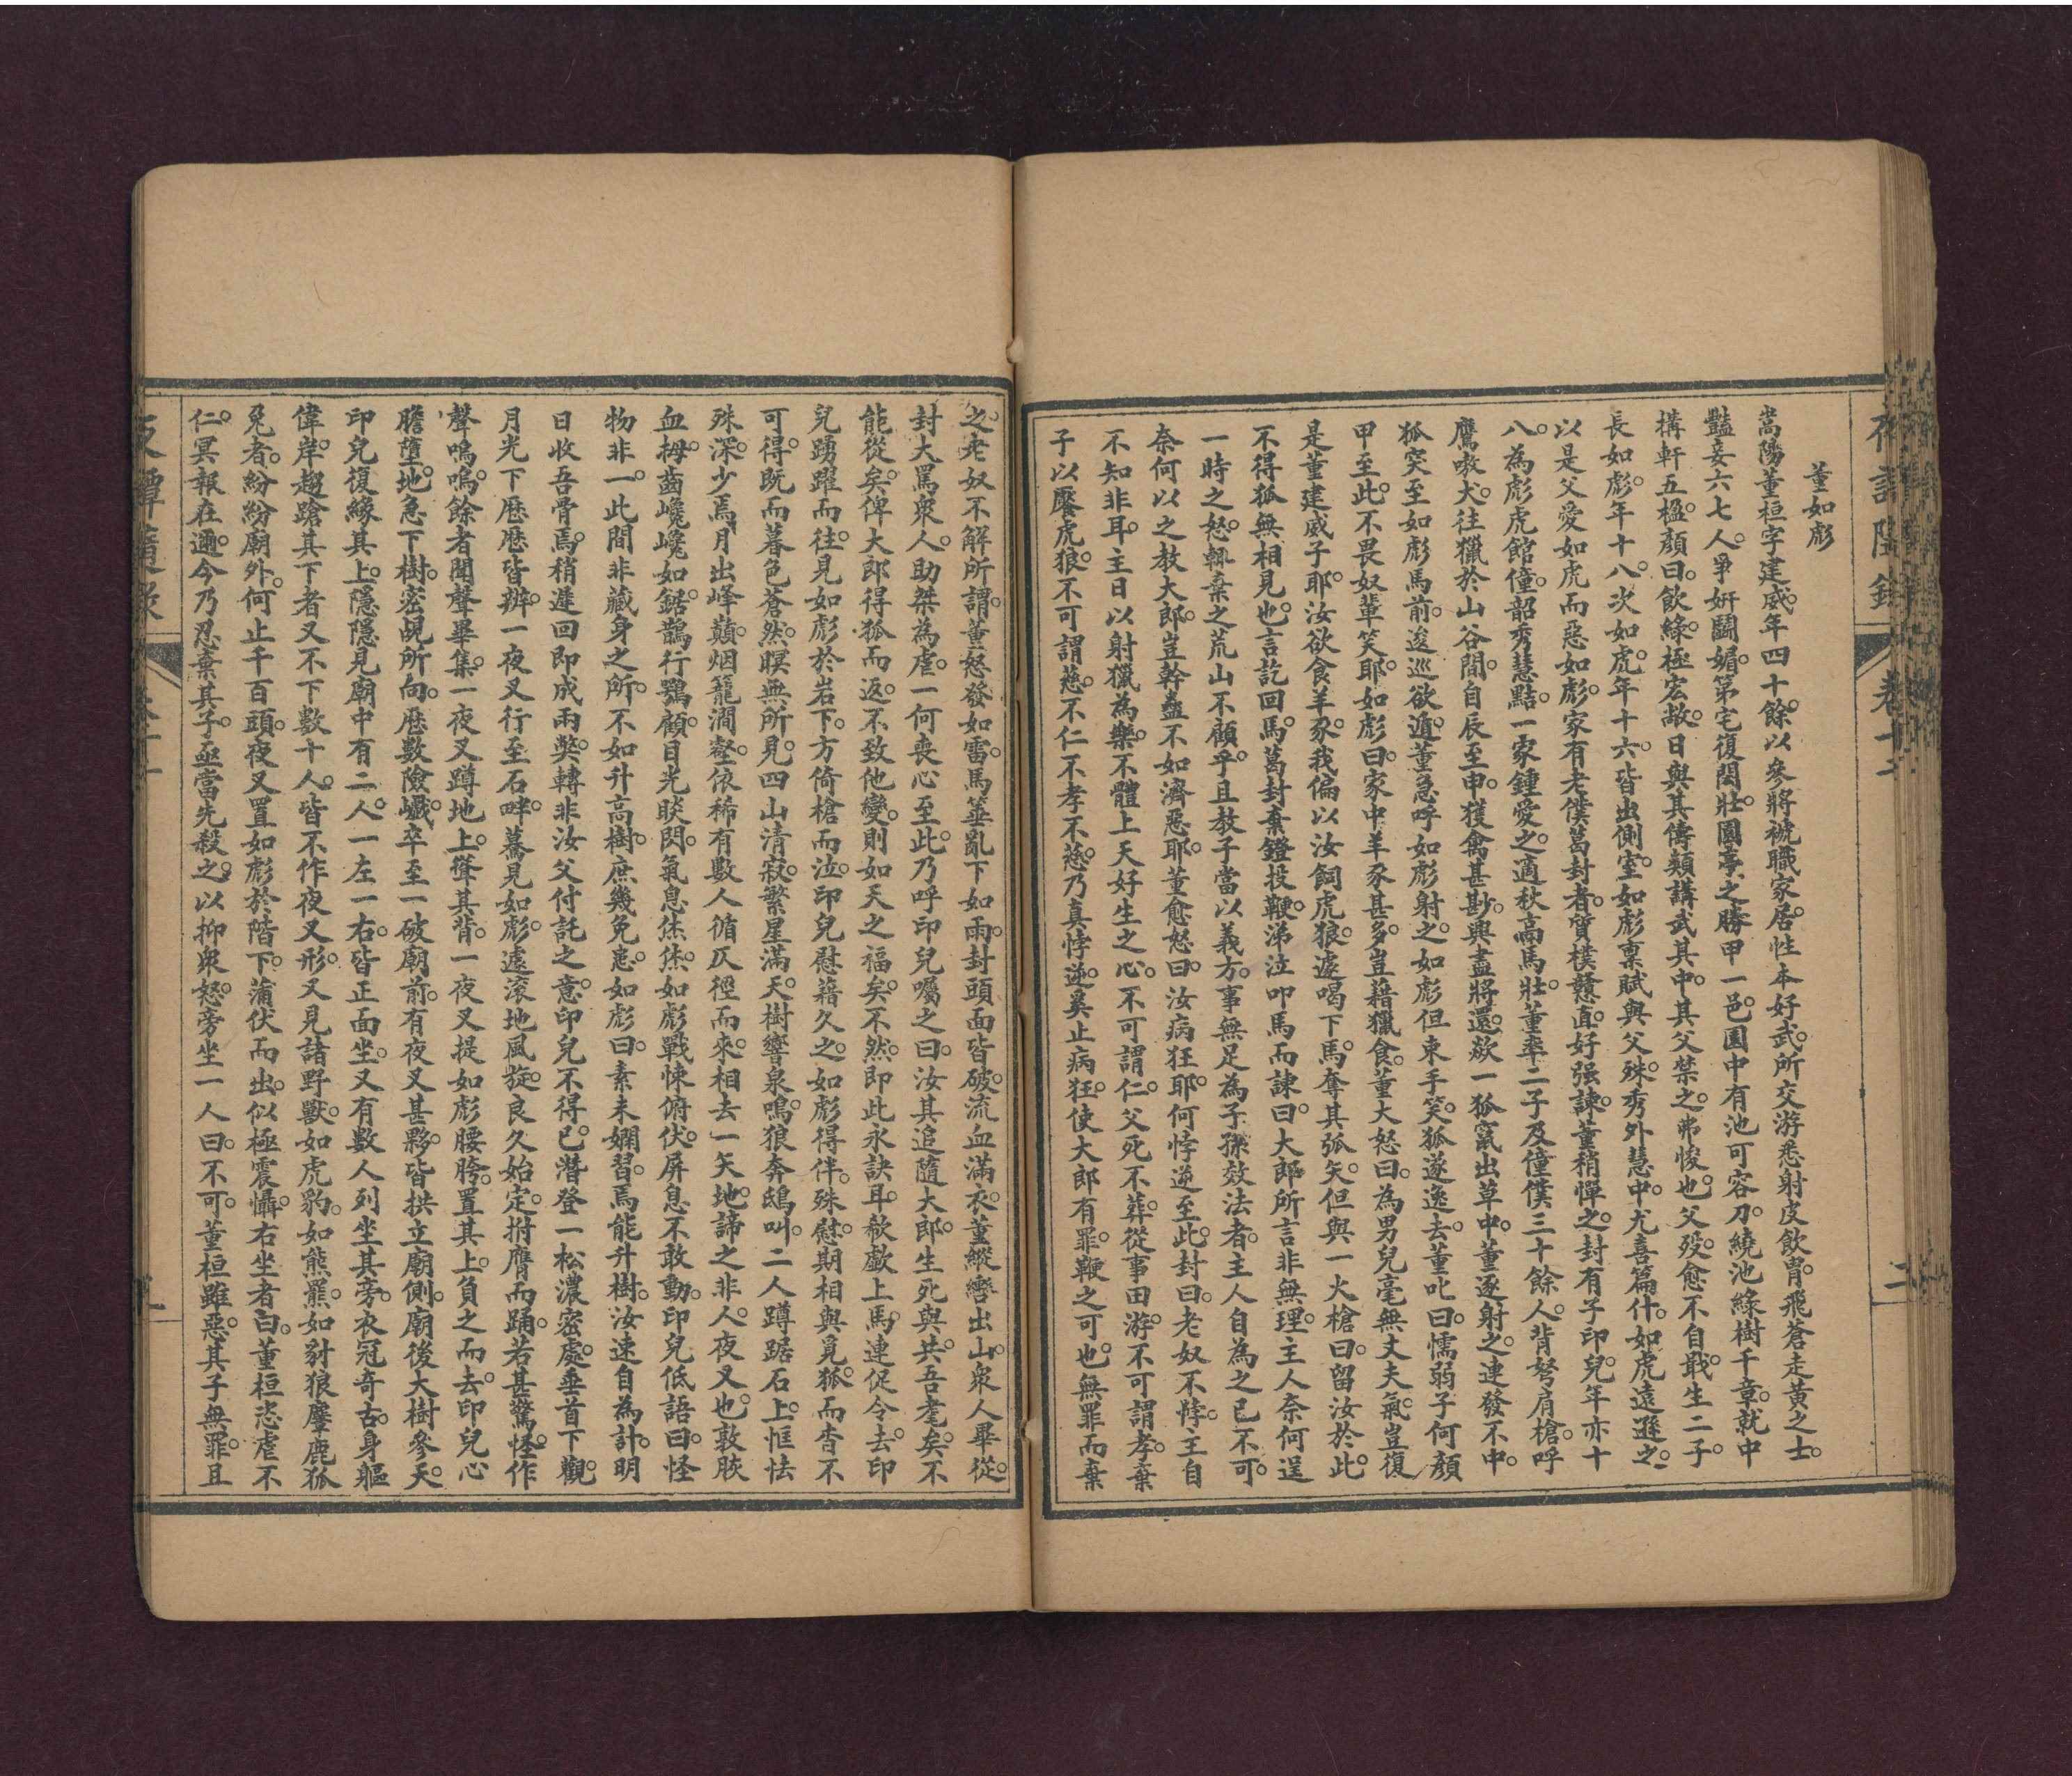 董如彪
嵩陽董桓字建威年四十餘以參將褫職家居性本好武所交游悉射皮飲胃飛蒼走黃之士
豔妾六七人爭妍鬬媚第宅復閎壯園亭之勝甲一邑園中有池可容刀繞池綠樹千章就中
構軒五楹顏曰飲綠極宏敞日與其儔類講武其中其父禁之弗悛也父歿愈不自戢生二子
長如彪年十八次如虎年十六皆出側室如彪稟賦與父殊秀外慧中尤喜篇什如虎遠遜之
以是父愛如虎而惡如彪家有老僕葛封者質樸戇直好强諫董稍憚之封有子印兒年亦十
八為彪虎館僮韶秀慧黠一家鍾愛之適秋高馬壯董率二子及僮僕三十餘人背弩肩槍呼
鷹嗾犬往獵於山谷間自辰至申獲禽甚尠興盡將還欻一狐竄出草中董逐射之連發不中
狐突至如彪馬前逡巡欲遁董急呼如彪射之如彪但束手笑狐遂逸去董叱曰懦弱子何顏
甲至此不畏奴輩笑耶如彪曰家中羊豕甚多豈藉獵食董大怒曰為男兒毫無丈夫氣豈復
是董建威子耶汝欲食羊豕我偏以汝飼虎狼遽喝下馬奪其弧矢但與一火槍曰留汝於此
不得狐無相見也言訖回馬葛封棄鐙投鞭涕泣叩馬而諫曰大郎所言非無理主人奈何逞
一時之怒輒棄之荒山不顧乎且教子當以義方事無足為子孫效法者主人自為之已不可
奈何以之教大郎豈幹蠱不如濟惡耶董愈怒曰汝病狂耶何悖逆至此封曰老奴不悖主自
不知非耳主日以射獵為樂不體上天好生之心不可謂仁父死不葬從事田游不可謂孝棄
子以饜虎狼不可謂慈不仁不孝不慈乃真悖逆奚止病狂使大郎有罪鞭之可也無罪而棄
之老奴不解所謂董怒發如雷馬箠亂下如雨封頭面皆破流血滿衣董縱轡出山衆人畢從
封大罵衆人助桀為虐一何喪心至此乃呼印兒囑之曰汝其追隨大郎生死與共吾耄矣不
能從矣俾大郎得狐而返不致他變則如天之福矣不然即此永訣耳欷歔上馬連促令去印
兒踴躍而往見如彪於岩下方倚槍而泣印兒慰藉久之如彪得伴殊慰期相與覓狐而杳不
可得既而暮色蒼然暝無所見四山清寂繁星滿天樹響泉鳴狼奔鴟叫二人蹲踞石上恇怯
殊深少焉月出峰巔烟籠澗壑依稀有數人循仄徑而來相去一矢地諦之非人夜叉也敦脄
血拇齒巉巉如鋸鵲行鶚顧目光睒閃氣息烋烋如彪戰悚俯伏屏息不敢動印兒低語曰怪
物非一此間非藏身之所不如升高樹庶幾免患如彪曰素未嫻習焉能升樹汝速自為計明
日收吾骨焉稍遲回即成兩斃轉非汝父付託之意印兒不得已潛登一松濃密處垂首下觀
月光下歷歷皆辨一夜叉行至石畔驀見如彪遽滾地風旋良久始定拊膺而踊若甚驚怪作
聲嗚嗚餘者聞聲畢集一夜叉蹲地上聳其背一夜叉提如彪腰胯置其上負之而去印兒心
膽墮地急下樹密覘所向歷數險巇卒至一破廟前有夜叉甚夥皆拱立廟側廟後大樹參天
印兒復緣其上隱隱見廟中有二人一左一右皆正面坐又有數人列坐其旁衣冠奇古身軀
偉岸趨蹌其下者又不下數十人皆不作夜叉形又見諸野獸如虎豹如熊羆如豺狼麞鹿狐
兔者紛紛廟外何止千百頭夜叉置如彪於階下蒲伏而出似極震懾右坐者曰董桓恣虐不
仁冥報在邇今乃忍棄其子亟當先殺之以抑衆怒旁坐一人曰不可董桓雖惡其子無罪且